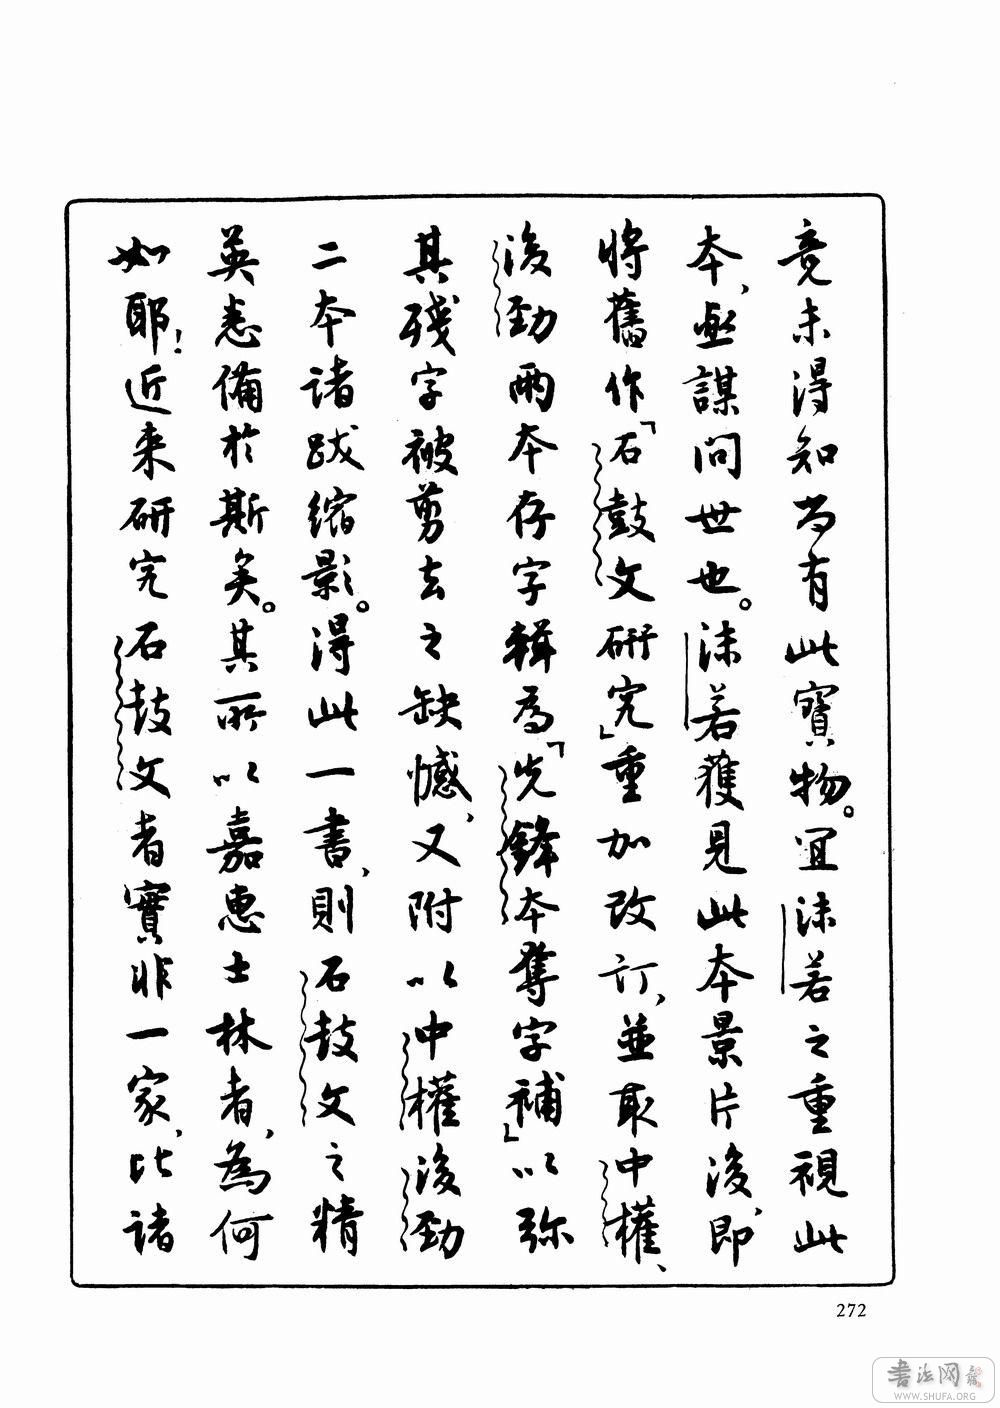 竟未得知尚有此寶物。宜沫若之重視此
本，亟謀問世也。沫若獲見此本景片後，即
將舊作「石鼓文研究」重加改訂，並取中權、
後勁兩本存字輯爲「先鋒本奪字補」以弥
其殘字被剪去之缺憾，又附以中權後勁
二本諸跋縮影。得此一書，則石鼓文之精
英悉備於斯矣。其所以嘉惠士林者，為何
如耶！近来研究石鼓文者實非一家，比諸
272
書法网
WWW.SHUFA.ORG